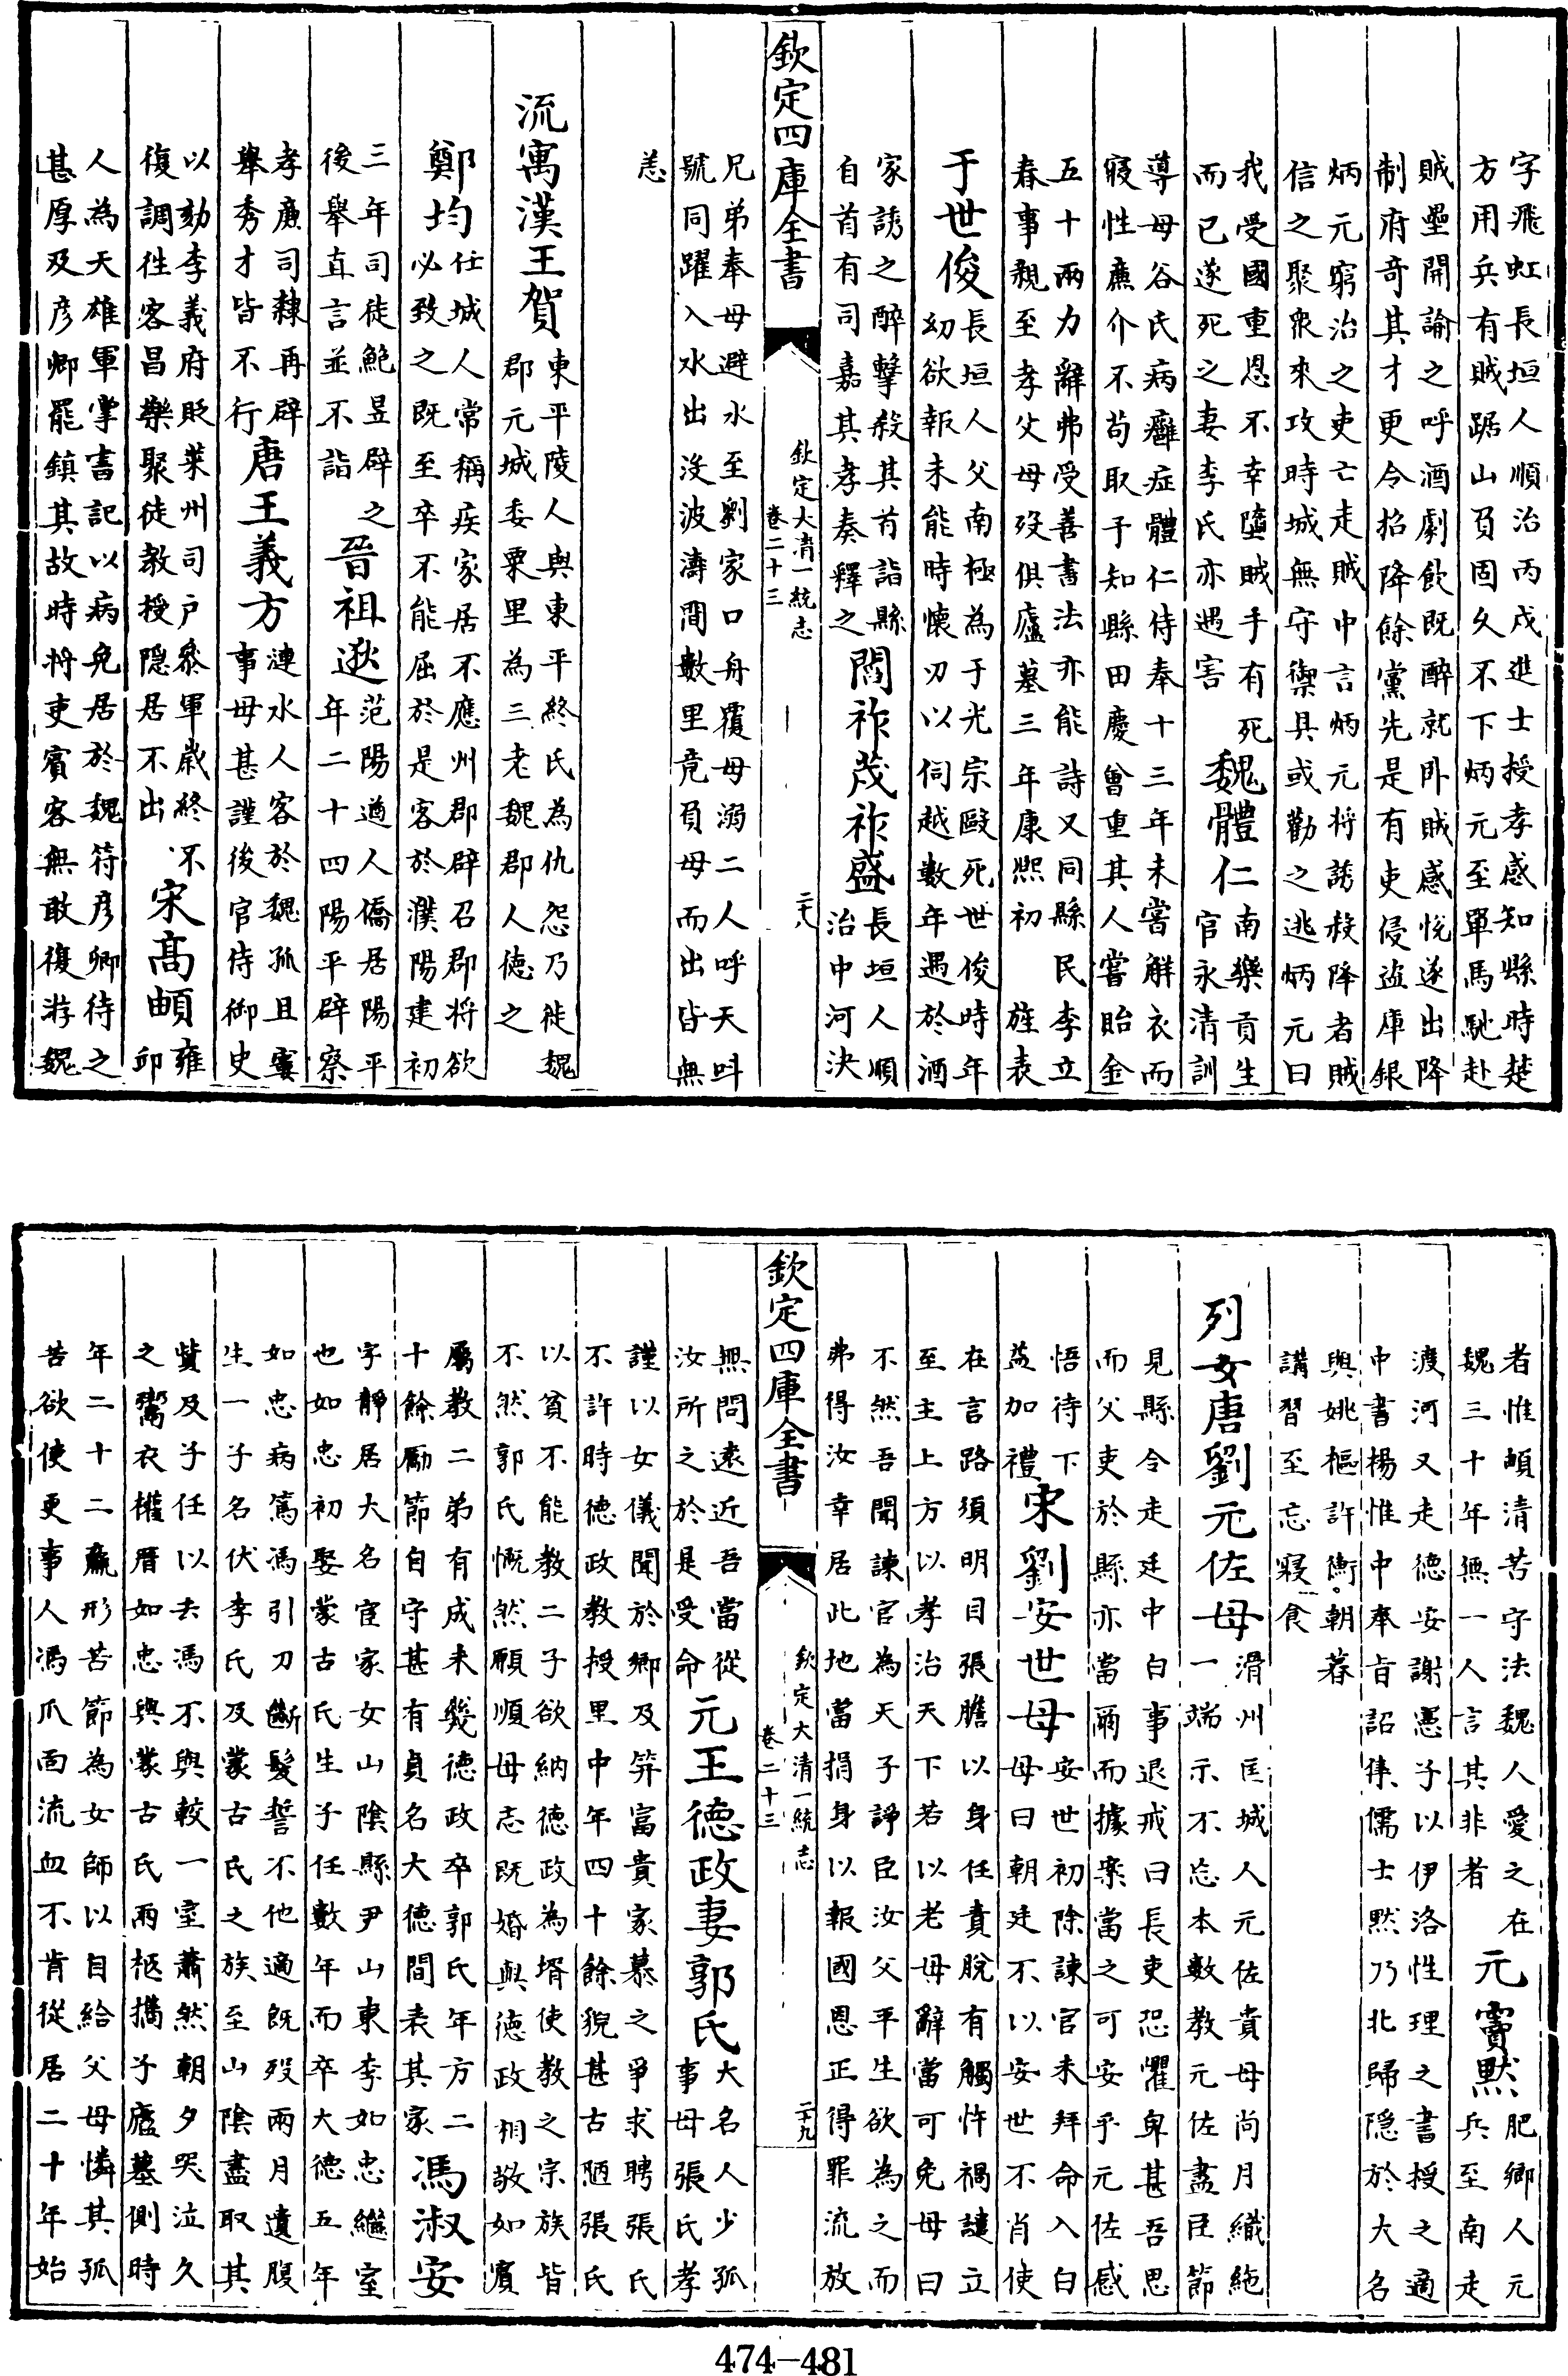 字飛虹長垣人順治丙戌進士授孝感知縣時楚
方用兵有賊踞山負固久不下炳元至單馬馳赴
賊壘開諭之呼酒劇飲既醉就卧賊感悦遂出降
制府竒其才更令招降餘黨先是有吏侵盜庫銀
炳元窮治之吏亡走賊中言炳元将誘殺降者賊
信之聚衆來攻時城無守禦具或勸之逃炳元曰
我受國重恩不幸墮賊手有死
而已遂死之妻李氏亦遇害
魏體仁
南樂貢生
官永清訓
導母谷氏病癰症體仁侍奉十三年未嘗解衣而
寢性亷介不苟取予知縣田慶曾重其人嘗貽金
五十兩力辭弗受善書法亦能詩又同縣民李立
春事親至孝父母殁俱廬墓三年康熙初旌表
于世俊
長垣人父南極為于光宗毆死世俊時年
幼欲報未能時懷刃以伺越數年遇於酒
家誘之醉撃殺其首詣縣
自首有司嘉其孝奏釋之
閻祚茂祚盛
長垣人順
治中河決
欽定四庫全書
欽定大清一統志
卷二十三
二十八
兄弟奉母避水至劉家口舟覆母溺二人呼天呌
號同躍入水出没波濤間數里竟負母而出皆無
恙
流寓漢王賀
東平陵人與東平終氏為仇怨乃徙魏
郡元城委粟里為三老魏郡人徳之
鄭均
任城人常稱疾家居不應州郡辟召郡将欲
必致之既至卒不能屈於是客於濮陽建初
三年司徒鮑昱辟之
後舉直言並不詣
晉祖逖
范陽遒人僑居陽平
年二十四陽平辟察
孝亷司隸再辟
舉秀才皆不行
唐王義方
漣水人客於魏孤且窶
事母甚謹後官侍御史
以劾李義府貶萊州司户叅軍歲終不
復調徃客昌樂聚徒教授隠居不出
宋髙頔
雍
邱
人為天雄軍掌書記以病免居於魏符彦卿待之
甚厚及彦卿罷鎮其故時将吏賓客無敢復游魏
者惟頔清苦守法魏人愛之在
魏三十年無一人言其非者
元竇黙
肥鄉人元
兵至南走
渡河又走徳安謝憲子以伊洛性理之書授之適
中書楊惟中奉旨詔集儒士黙乃北歸隠於大名
與姚樞許衡朝暮
講習至忘寢食
列女唐劉元佐母
滑州匡城人元佐貴母尚月織絁
一端示不忘本數教元佐盡臣節
見縣令走廷中白事退戒曰長吏恐懼卑甚吾思
而父吏於縣亦當爾而據案當之可安乎元佐感
悟待下
益加禮
宋劉安世母
安世初除諫官未拜命入白
母曰朝廷不以安世不肖使
在言路須明目張膽以身任責脱有觸忤禍譴立
至主上方以孝治天下若以老母辭當可免母曰
不然吾聞諫官為天子諍臣汝父平生欲為之而
弗得汝幸居此地當捐身以報國恩正得罪流放
欽定四庫全書
欽定大清一統志
卷二十三
二十九
無問逺近吾當從
汝所之於是受命
元王徳政妻郭氏
大名人少孤
事母張氏孝
謹以女儀聞於鄉及笄富貴家慕之爭求聘張氏
不許時徳政教授里中年四十餘貌甚古陋張氏
以貧不能教二子欲納徳政為壻使教之宗族皆
不然郭氏慨然願順母志既婚與徳政相敬如賓
屬教二弟有成未幾徳政卒郭氏年方二
十餘勵節自守甚有貞名大徳間表其家
馮淑安
字靜居大名宦家女山陰縣尹山東李如忠繼室
也如忠初娶蒙古氏生子任數年而卒大徳五年
如忠病篤馮引刀斷髮誓不他適既殁兩月遺腹
生一子名伏李氏及蒙古氏之族至山陰盡取其
貲及子任以去馮不與較一室蕭然朝夕哭泣久
之鬻衣權厝如忠與蒙古氏兩柩擕子廬墓側時
年二十二羸形苦節為女師以自給父母憐其孤
苦欲使更事人馮爪面流血不肯從居二十年始
474-481